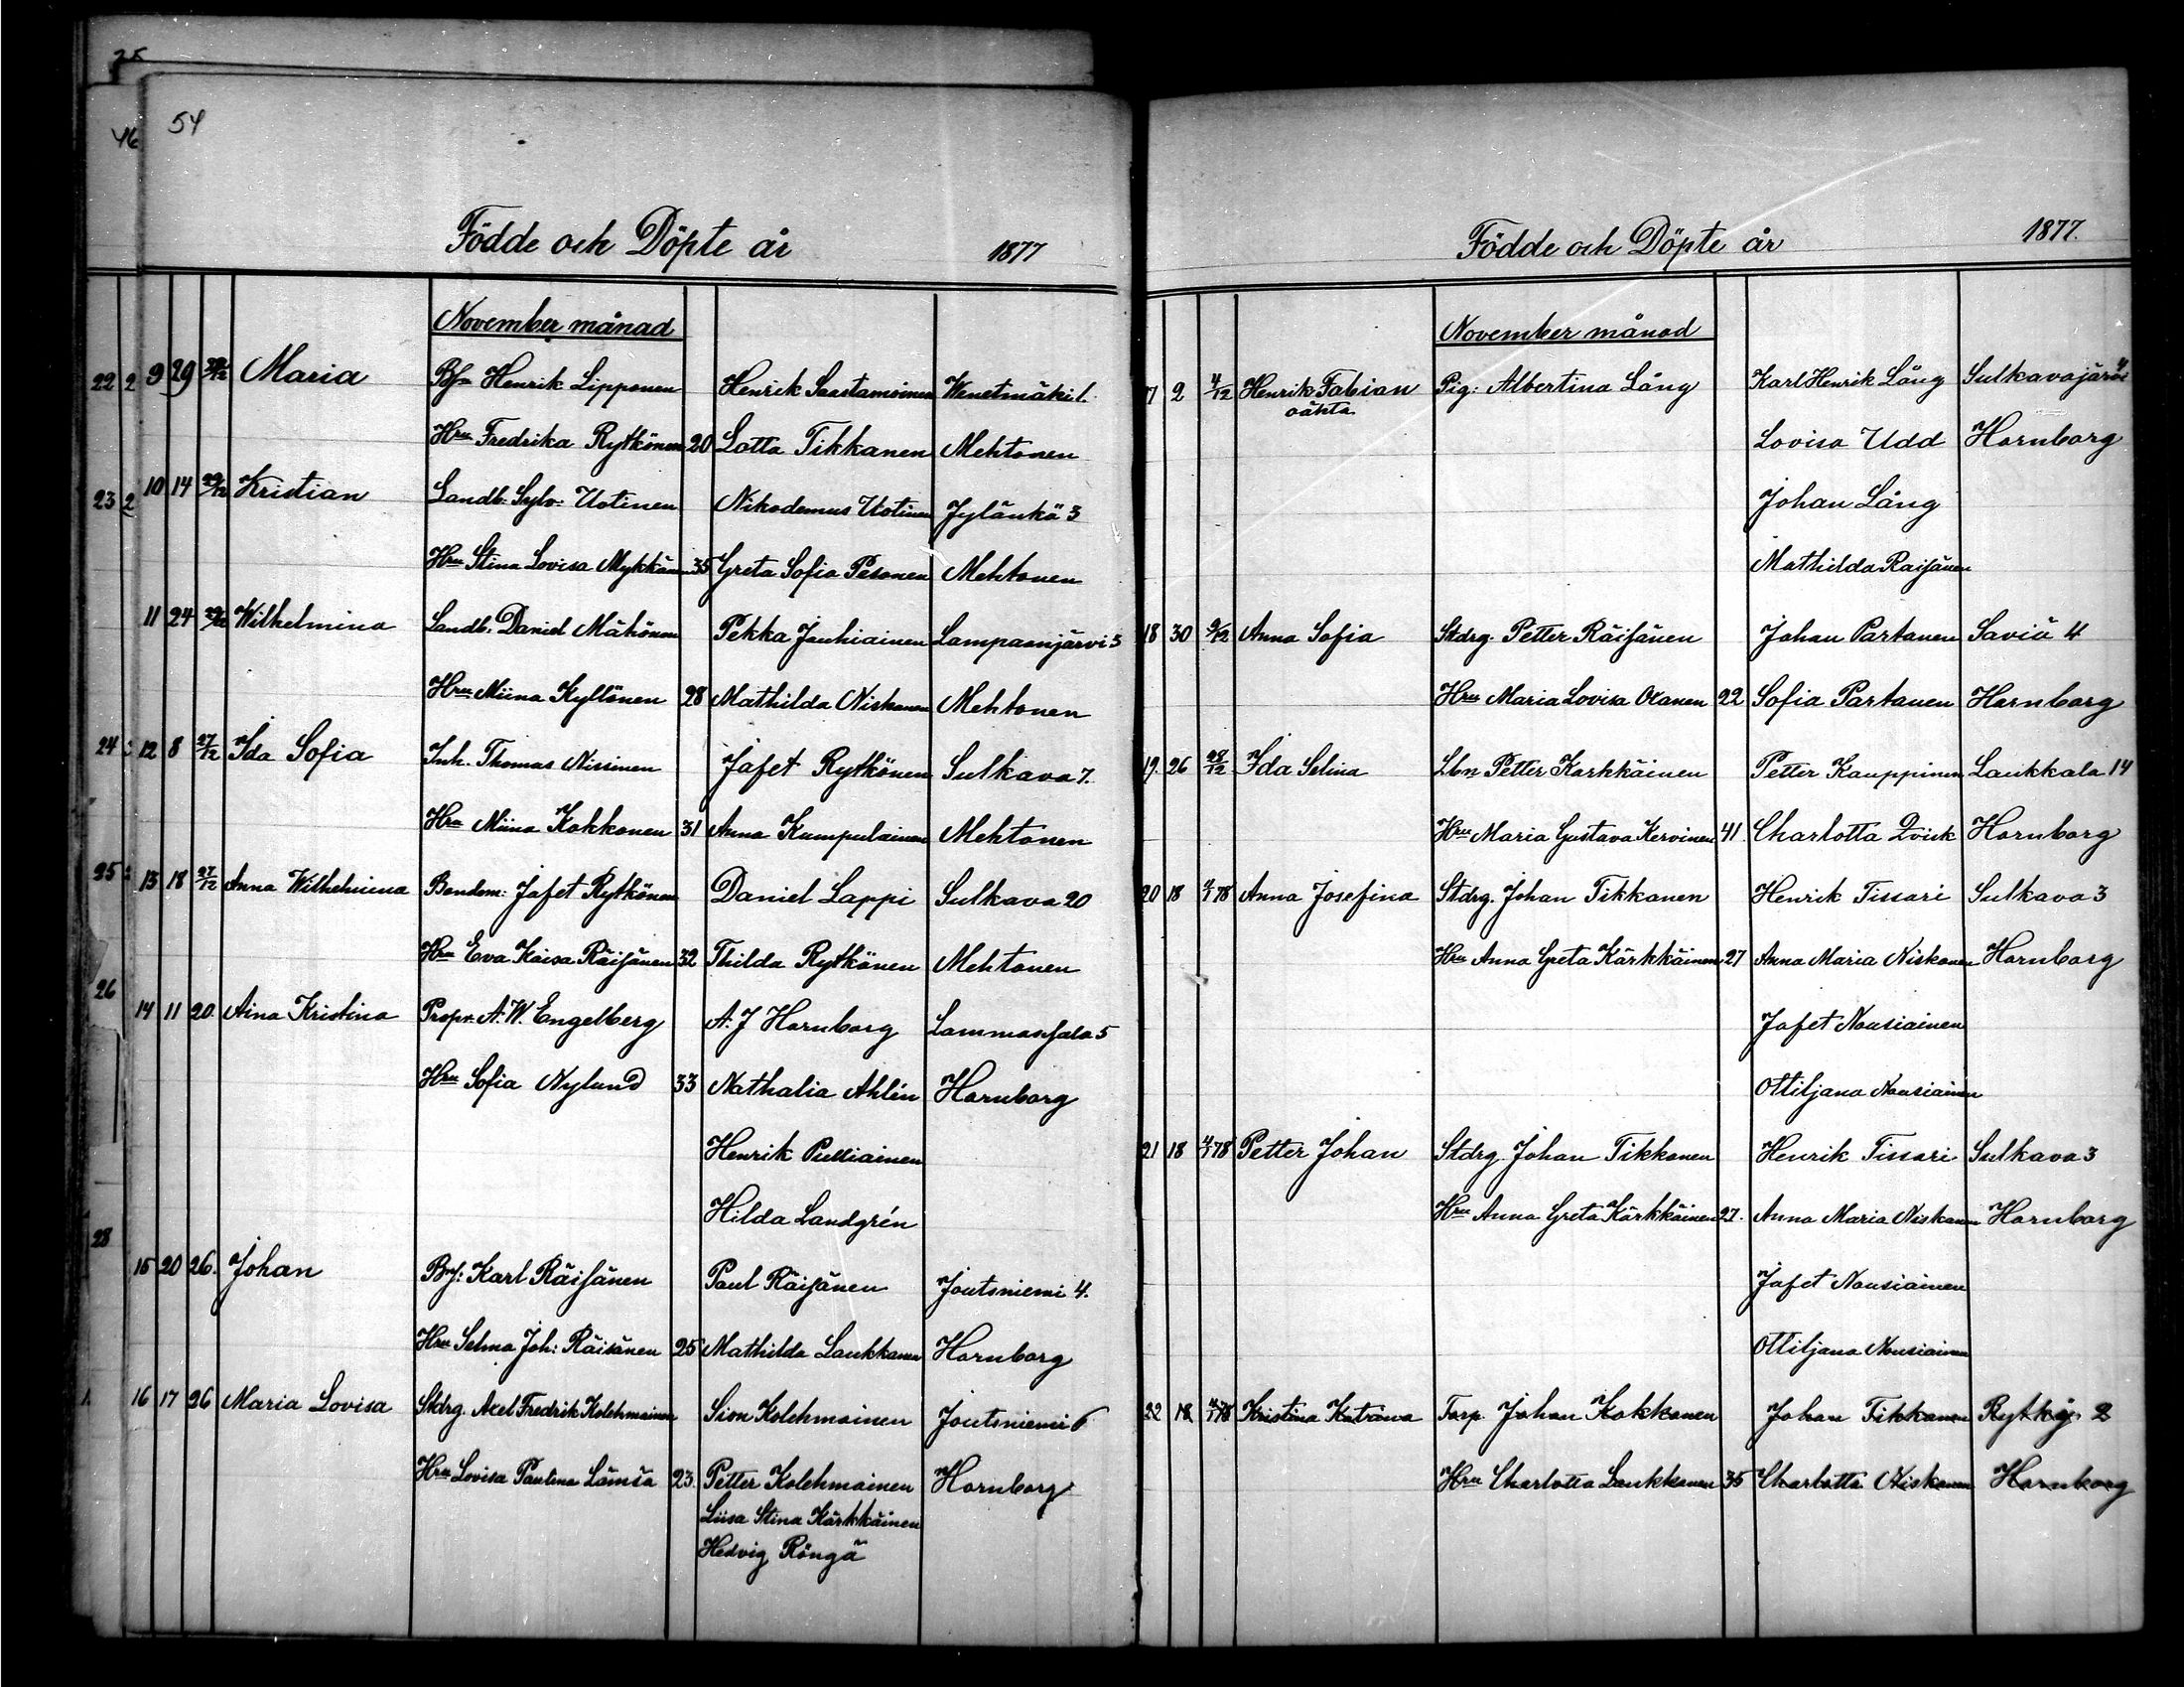 54
Födde och Döpte år 1877
November månad
9 29 Maria Bfn Henrik Lipponen Henrik Saastamoinen Wenetmäki 1.
Hru Fredrika Rytkönen 20 Lotta Tikkanen Mehtonen
10 14 Kristian Landb. Sylv. Uotinen Nikodemus Uotinen Jylänkö 3
Hru Stina Lovisa Mykkänen 35 Greta Sofia Pesonen Mehtonen
11 24 Wilhelmina Landb. Daniel Mähönen Pekka Jauhiainen Lampaanjärvi 5
Hru Miina Kyllönen 28 Mathilda Niskanen Mehtonen
12 8 27/12 Ida Sofia Inh. Thomas Nissinen Jafet Rytkönen Sulkava 7.
Hru Miina Kokkonen 31 Anna Kumpulainen Mehtonen
13 18 27/12 Anna Wilhelmina Bondem: Jafet Rytkönen Daniel Lappi Sulkava 20
Hru Eva Kaisa Räisänen 32 Thilda Rytkönen Mehtonen
14 11 20. Aina Kristina Propr. A. W. Engelberg A. J Hornborg Lammassalo 5
Hru Sofia Nylund 33 Nathalia Ahlén Hornborg
Henrik Pulliainen
Hilda Landgrén
15 20 26. Johan Karl Räisänen Paul Räisänen Joutsniemi 4.
Hru Selma Joh: Räisänen 25 Mathilda Laukkanen Hornborg
16 17 26 Maria Lovisa Stdrg. Axel Fredrik Kolehmainen Sion Kolehmainen Joutsniemi 6
Hru Lovisa Paulina Lämsä 23. Petter Kolehmainen Hornborg
Liisa Stina Kärkkäinen
Hedvig Röngä
Födde och Döpte år 1877.
November månad
17 2 4/12 Henrik Fabian Pig: Albertina Lång Karl Henrik Lång Sulkavajärvi 4
oäkta
Lovisa Udd Hornborg
Johan Lång
Mathilda Räisänen
18 30 9/12 Anna Sofia Stdrg. Petter Räisänen Johan Partanen Saviä 4
Hru Maria Lovisa Oxanen 22 Sofia Partanen Hornborg
19. 26 28/12 Ida Selina Lbn Petter Karkkäinen Petter Kauppinen Laukkala 14
Hru Maria Gustava Kervinen 41. Charlotta Qvick Hornborg
20 18 4/1 78 Anna Josefina Stdrg. Johan Tikkanen Henrik Tissari Sulkava 3
Hru Anna Greta Kärkkäinen 27 Anna Maria Niskanen Hornborg
Jafet Nousiainen
Ottiljana Nousiainen
21 18 4/1 78 Petter Johan Stdrg Johan Tikkanen Henrik Tissari Sulkava 3
Hru Anna Greta Kärkkäinen 27. Anna Maria Niskanen Hornborg
Jafet Nousiainen
Ottiljana Nousiainen
22 18 4/1 78 Kristina Katrava Torp. Johan Kokkonen Johan Tikkanen Rytky 2
Hru Charlotta Laukkanen 35 Charlotta Niskanen Hornborg